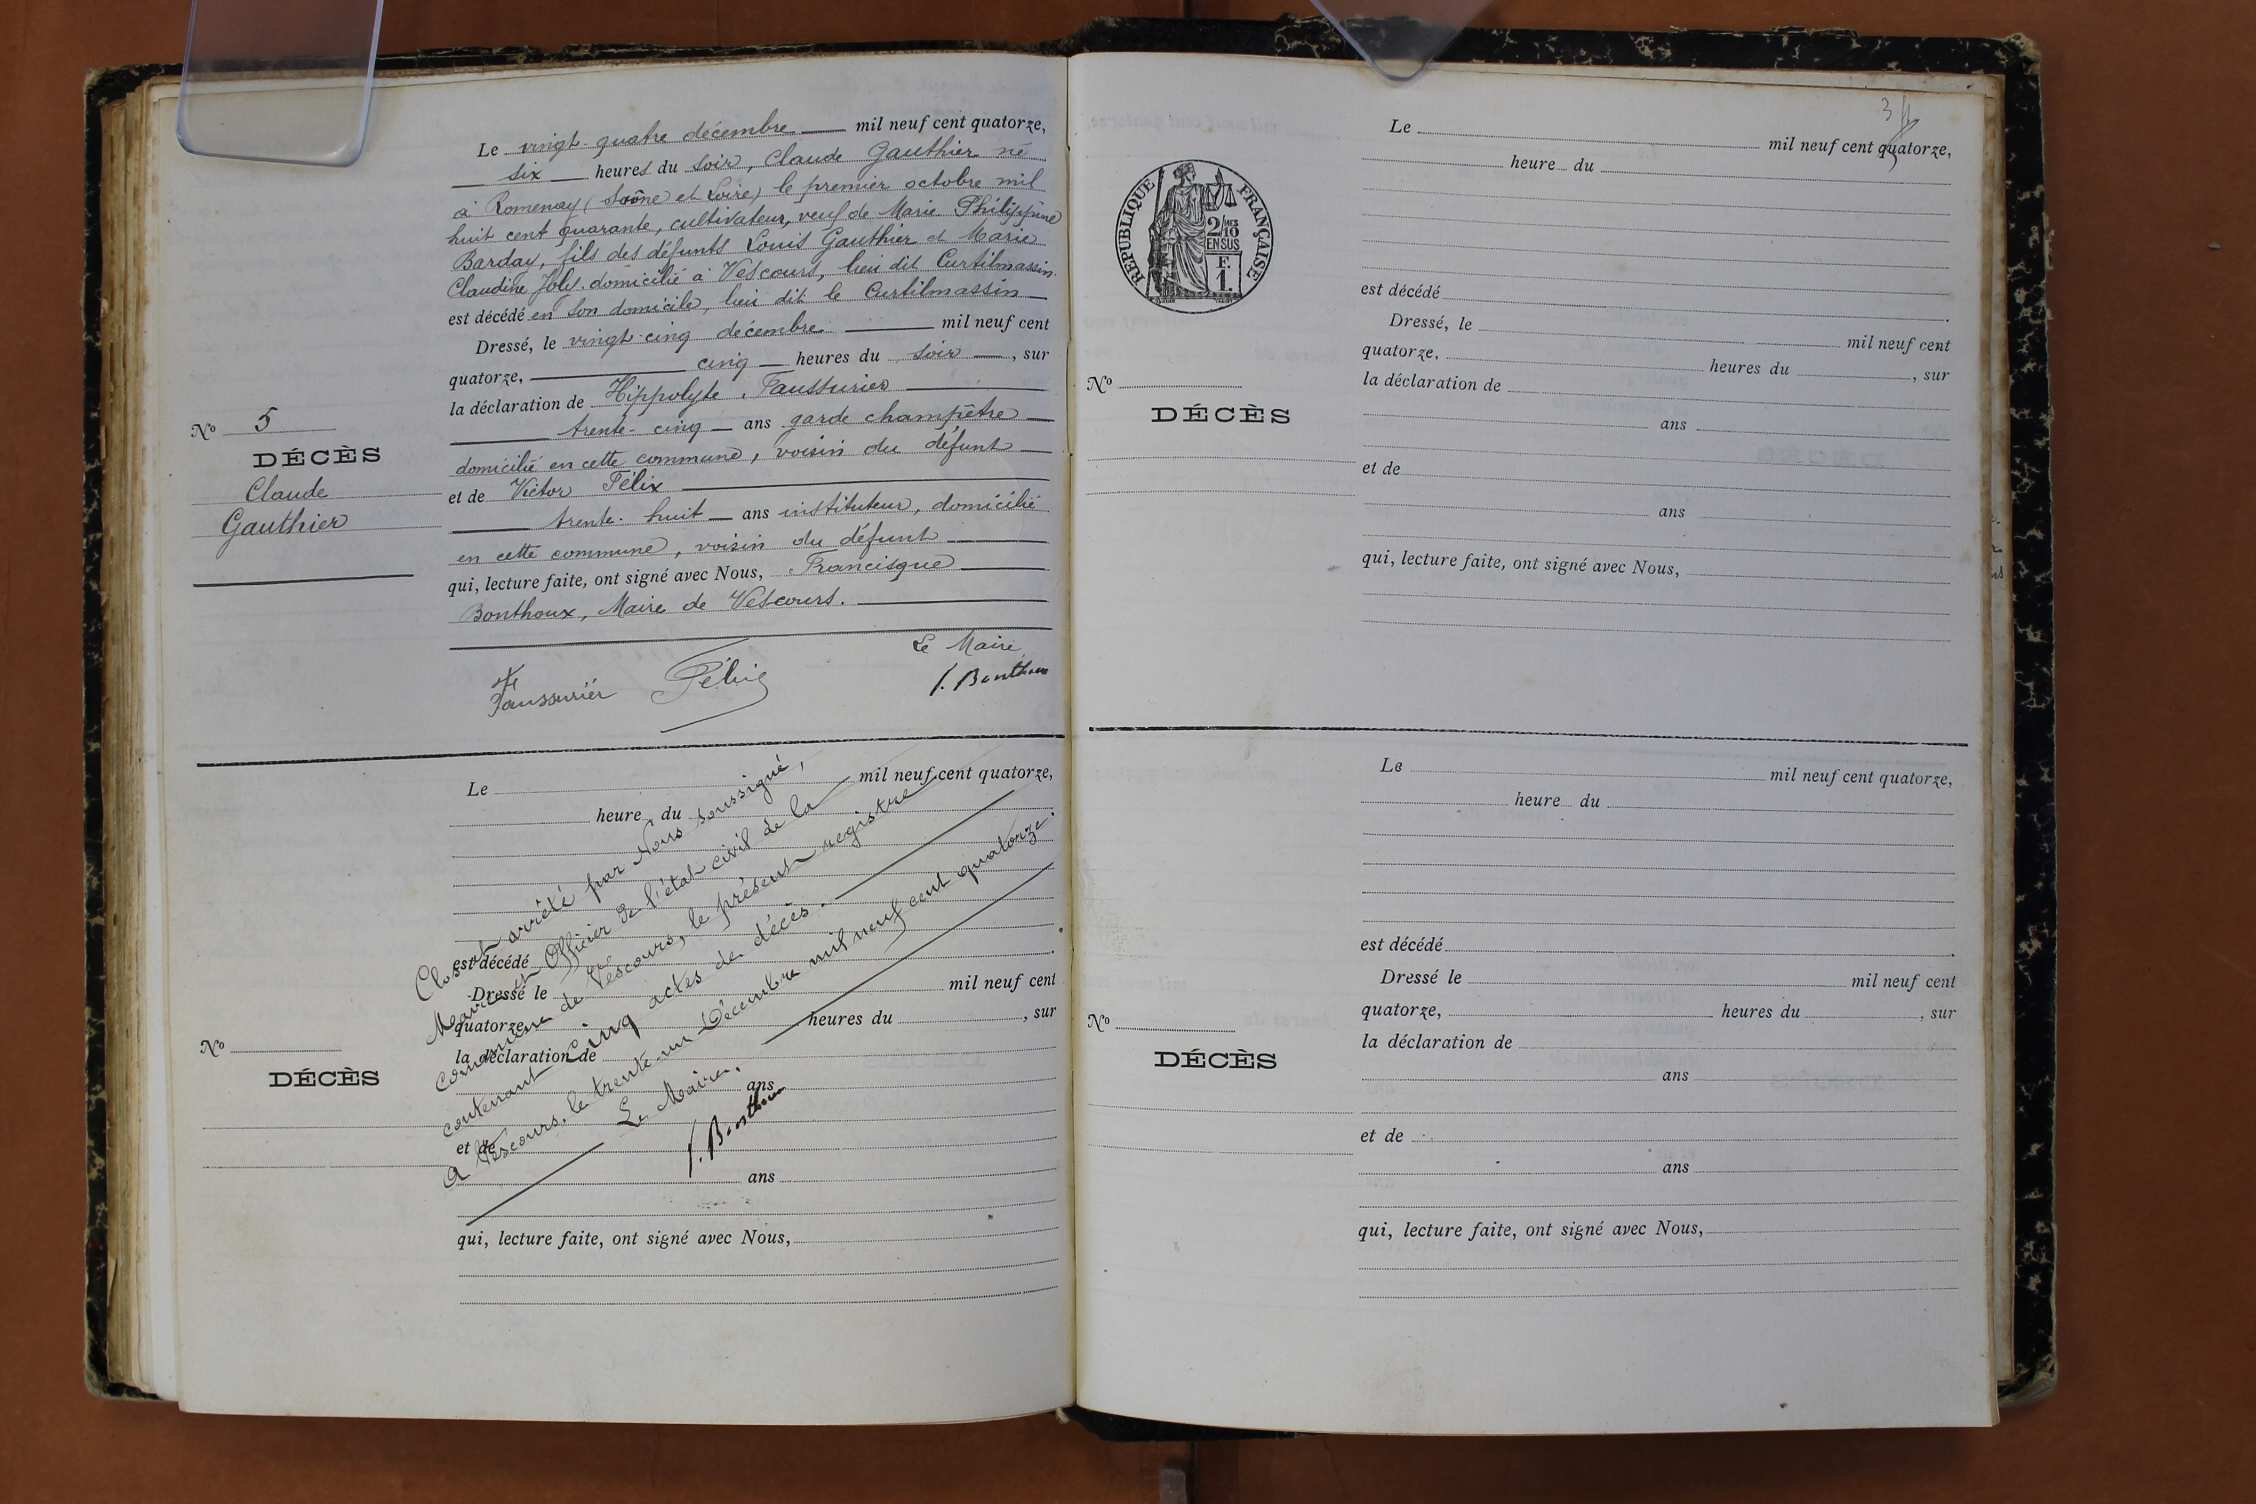 Le vingt-quatre décembre mil neuf cent quatorze,
six heures du soir, Claude Gauthier né
à Romenay (Saône et Loire) le premier octobre mil
huit cent quarante, cultivateur, veuf de Marie Philippine
Barday, fils des défunts Louis Gauthier et Marie
Claudine Joly. domicilié à Vescours, lieu dit Curtilmassin.
est décédé en son domicile, lieu dit le Curtilmassin
Dressé, le vingt-cinq décembre mil neuf cent
quatorze, cinq heures du soir, sur
la déclaration de Hippolyte Faussurier
trente-cinq ans garde champêtre
domicilié en cette commune, voisin du défunt
et de Victor Félix
trente-huit ans instituteur, domicilié
en cette commune, voisin du défunt
qui, lecture faite, ont signé avec Nous, Francisque
Bonthoux, Maire de Vescours.
Le Maire
Faussurier Félix f. Bonthoux
No 5
DÉCÈS
Claude
Gauthier
Le mil neuf cent quatorze,
heure du
est décédé
Dressé le mil neuf cent
quatorze, heures du , sur
la déclaration de
ans
et de
ans
qui, lecture faite, ont signé avec Nous,
Clos et arrêté par Nous soussigné,
Maire et Officier de l'état civil de la
commune de Vescours, le présent registre
contenant cinq actes de décès.
A Vescours, le trente-un Décembre mil neuf cent quatorze.
Le Maire,
f. Bonthoux
No
DÉCÈS
34
RÉPUBLIQUE FRANÇAISE
2/10 MES
EN SUS
F.
1.
Le mil neuf cent quatorze,
heure du
est décédé
Dressé, le mil neuf cent
quatorze, heures du , sur
la déclaration de
ans
et de
ans
qui, lecture faite, ont signé avec Nous,
No
DÉCÈS
Le mil neuf cent quatorze,
heure du
est décédé
Dressé le mil neuf cent
quatorze, heures du , sur
la déclaration de
ans
et de
ans
qui, lecture faite, ont signé avec Nous,
No
DÉCÈS